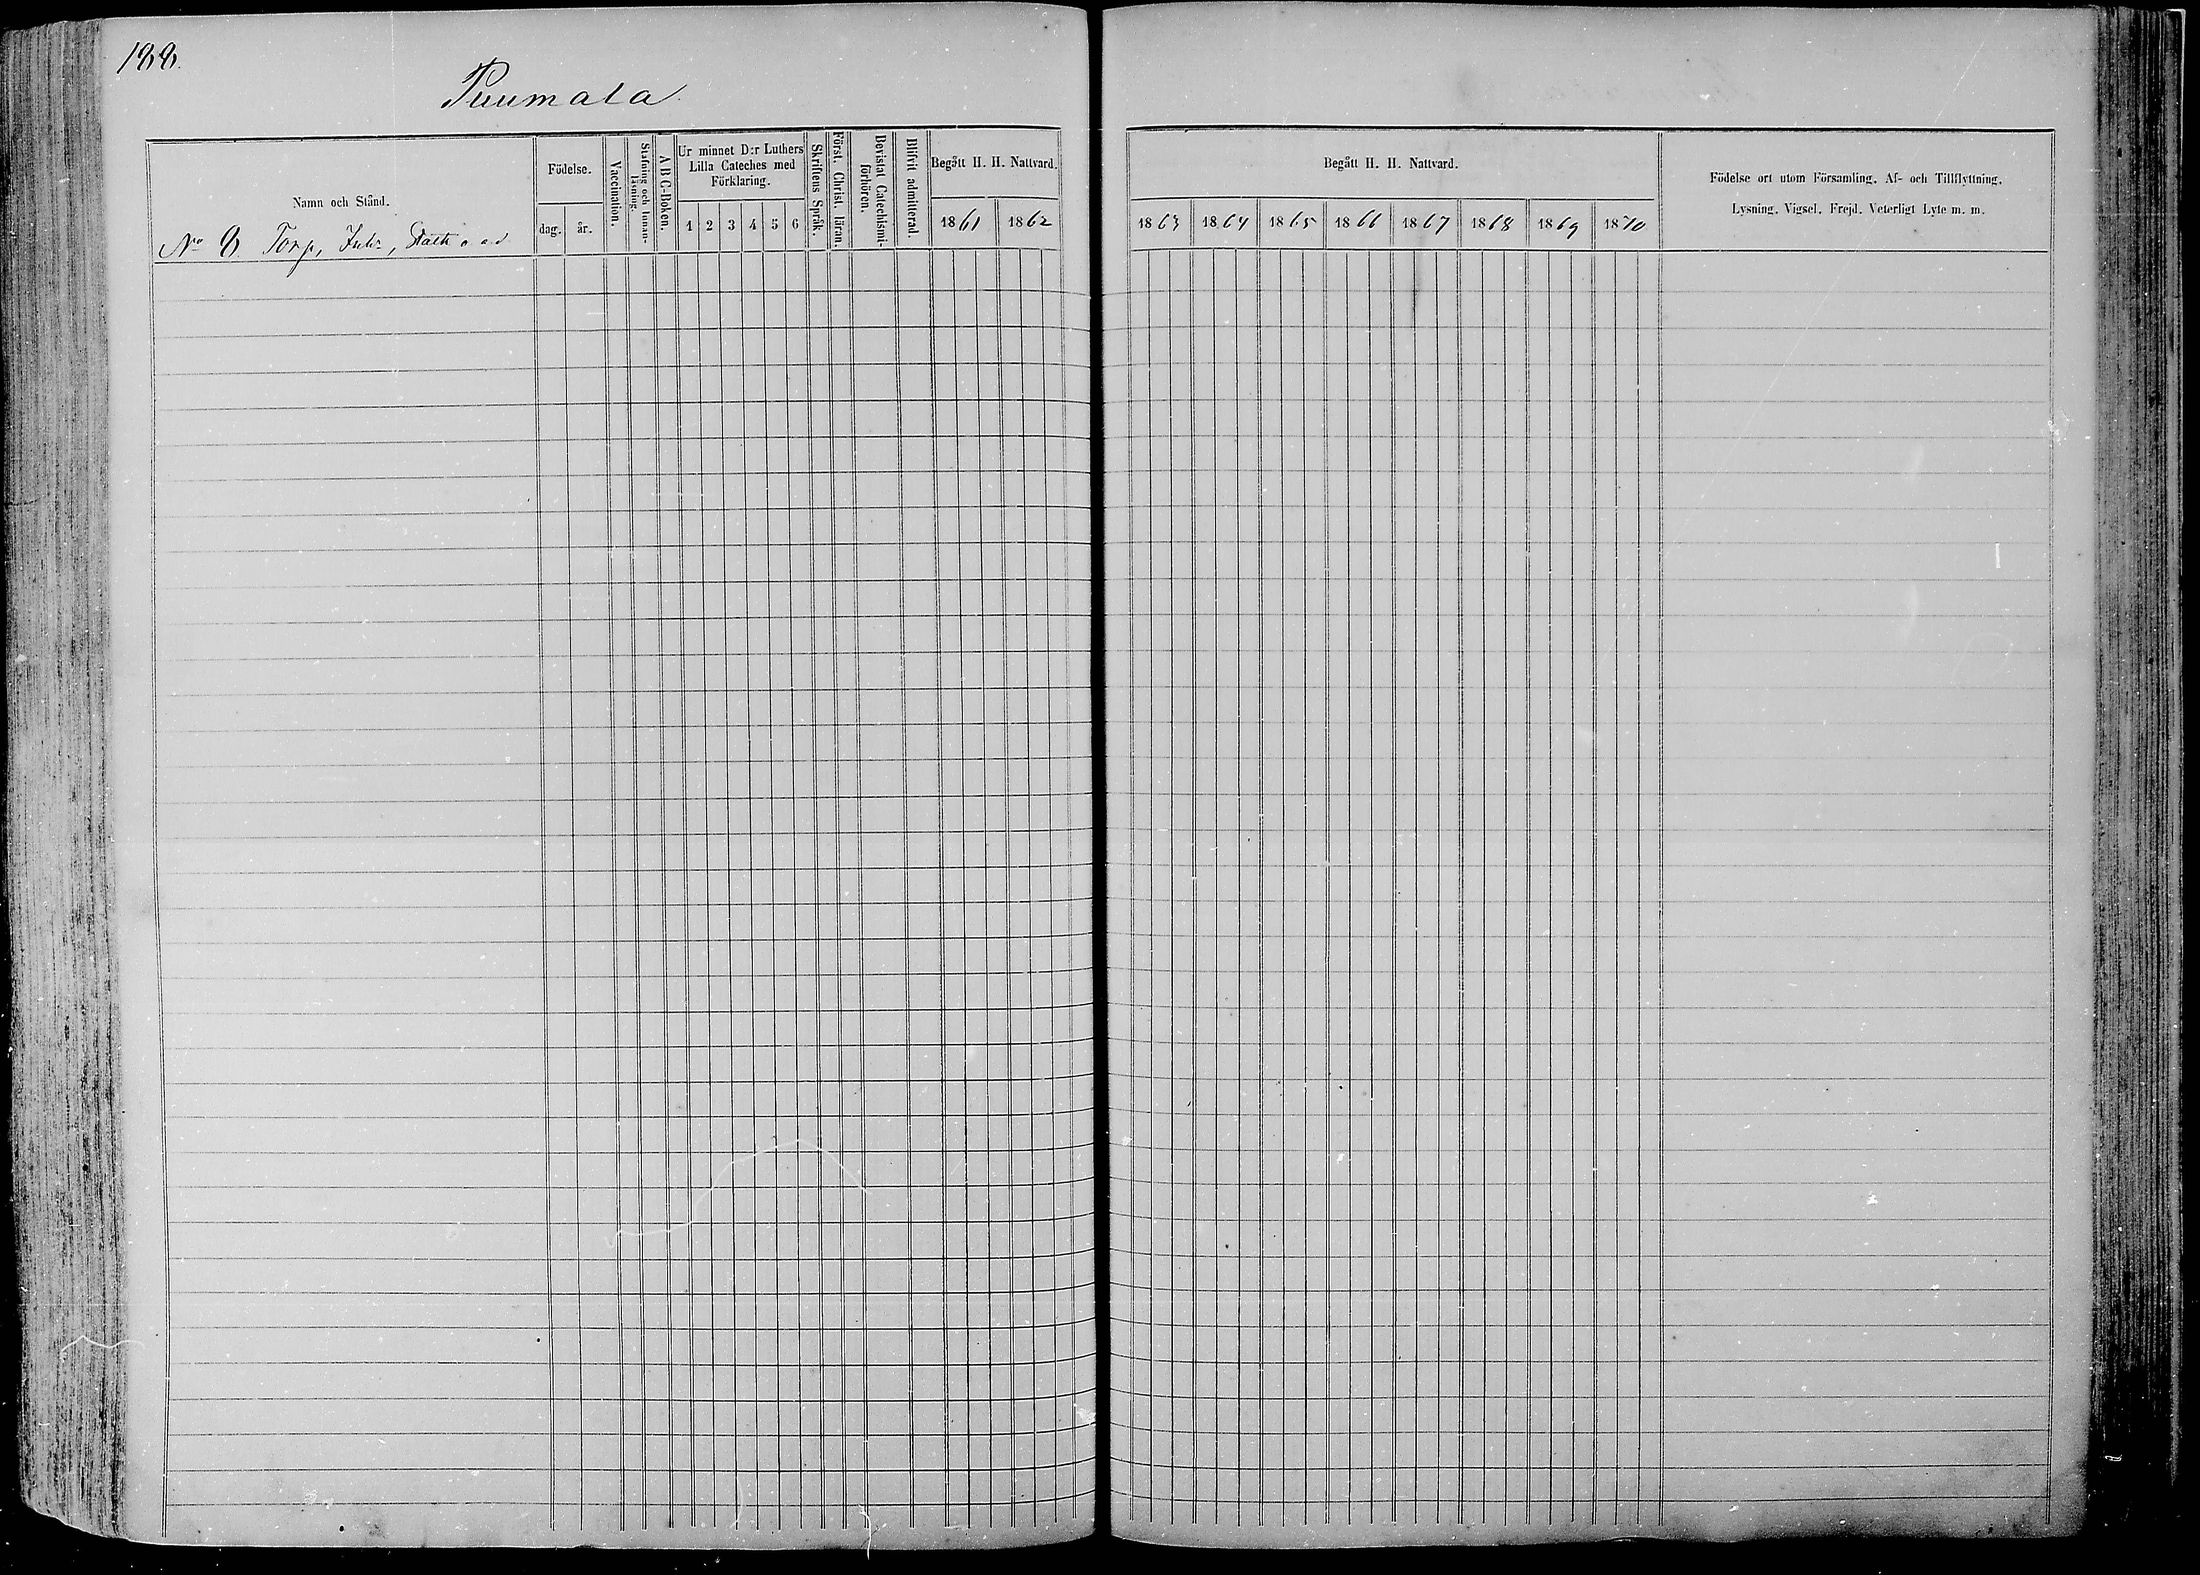 188.
Puumala.
Namn och Stånd.
No 8. Torp, Inhr, Stath o. a. d
Födelse.
dag. år.
Vaccination.
Stafning och Innanläsning.
A B C-Boken.
Ur minnet D:r Luthers
Lilla Cateches med
Förklaring.
1 2 3 4 5 6
Skriftens Språk.
Först. Christ. läran.
Bevistat Catechismiförhören.
Blifvit admitterad.
Begått H. H. Nattvard.
1861 1862
Begått H. H. Nattvard.
1863 1864 1865 1866 1867 1868 1869 1870
Födelse ort utom Församling. Af- och Tillflyttning.
Lysning. Vigsel. Frejd. Veterligt Lyte m. m.